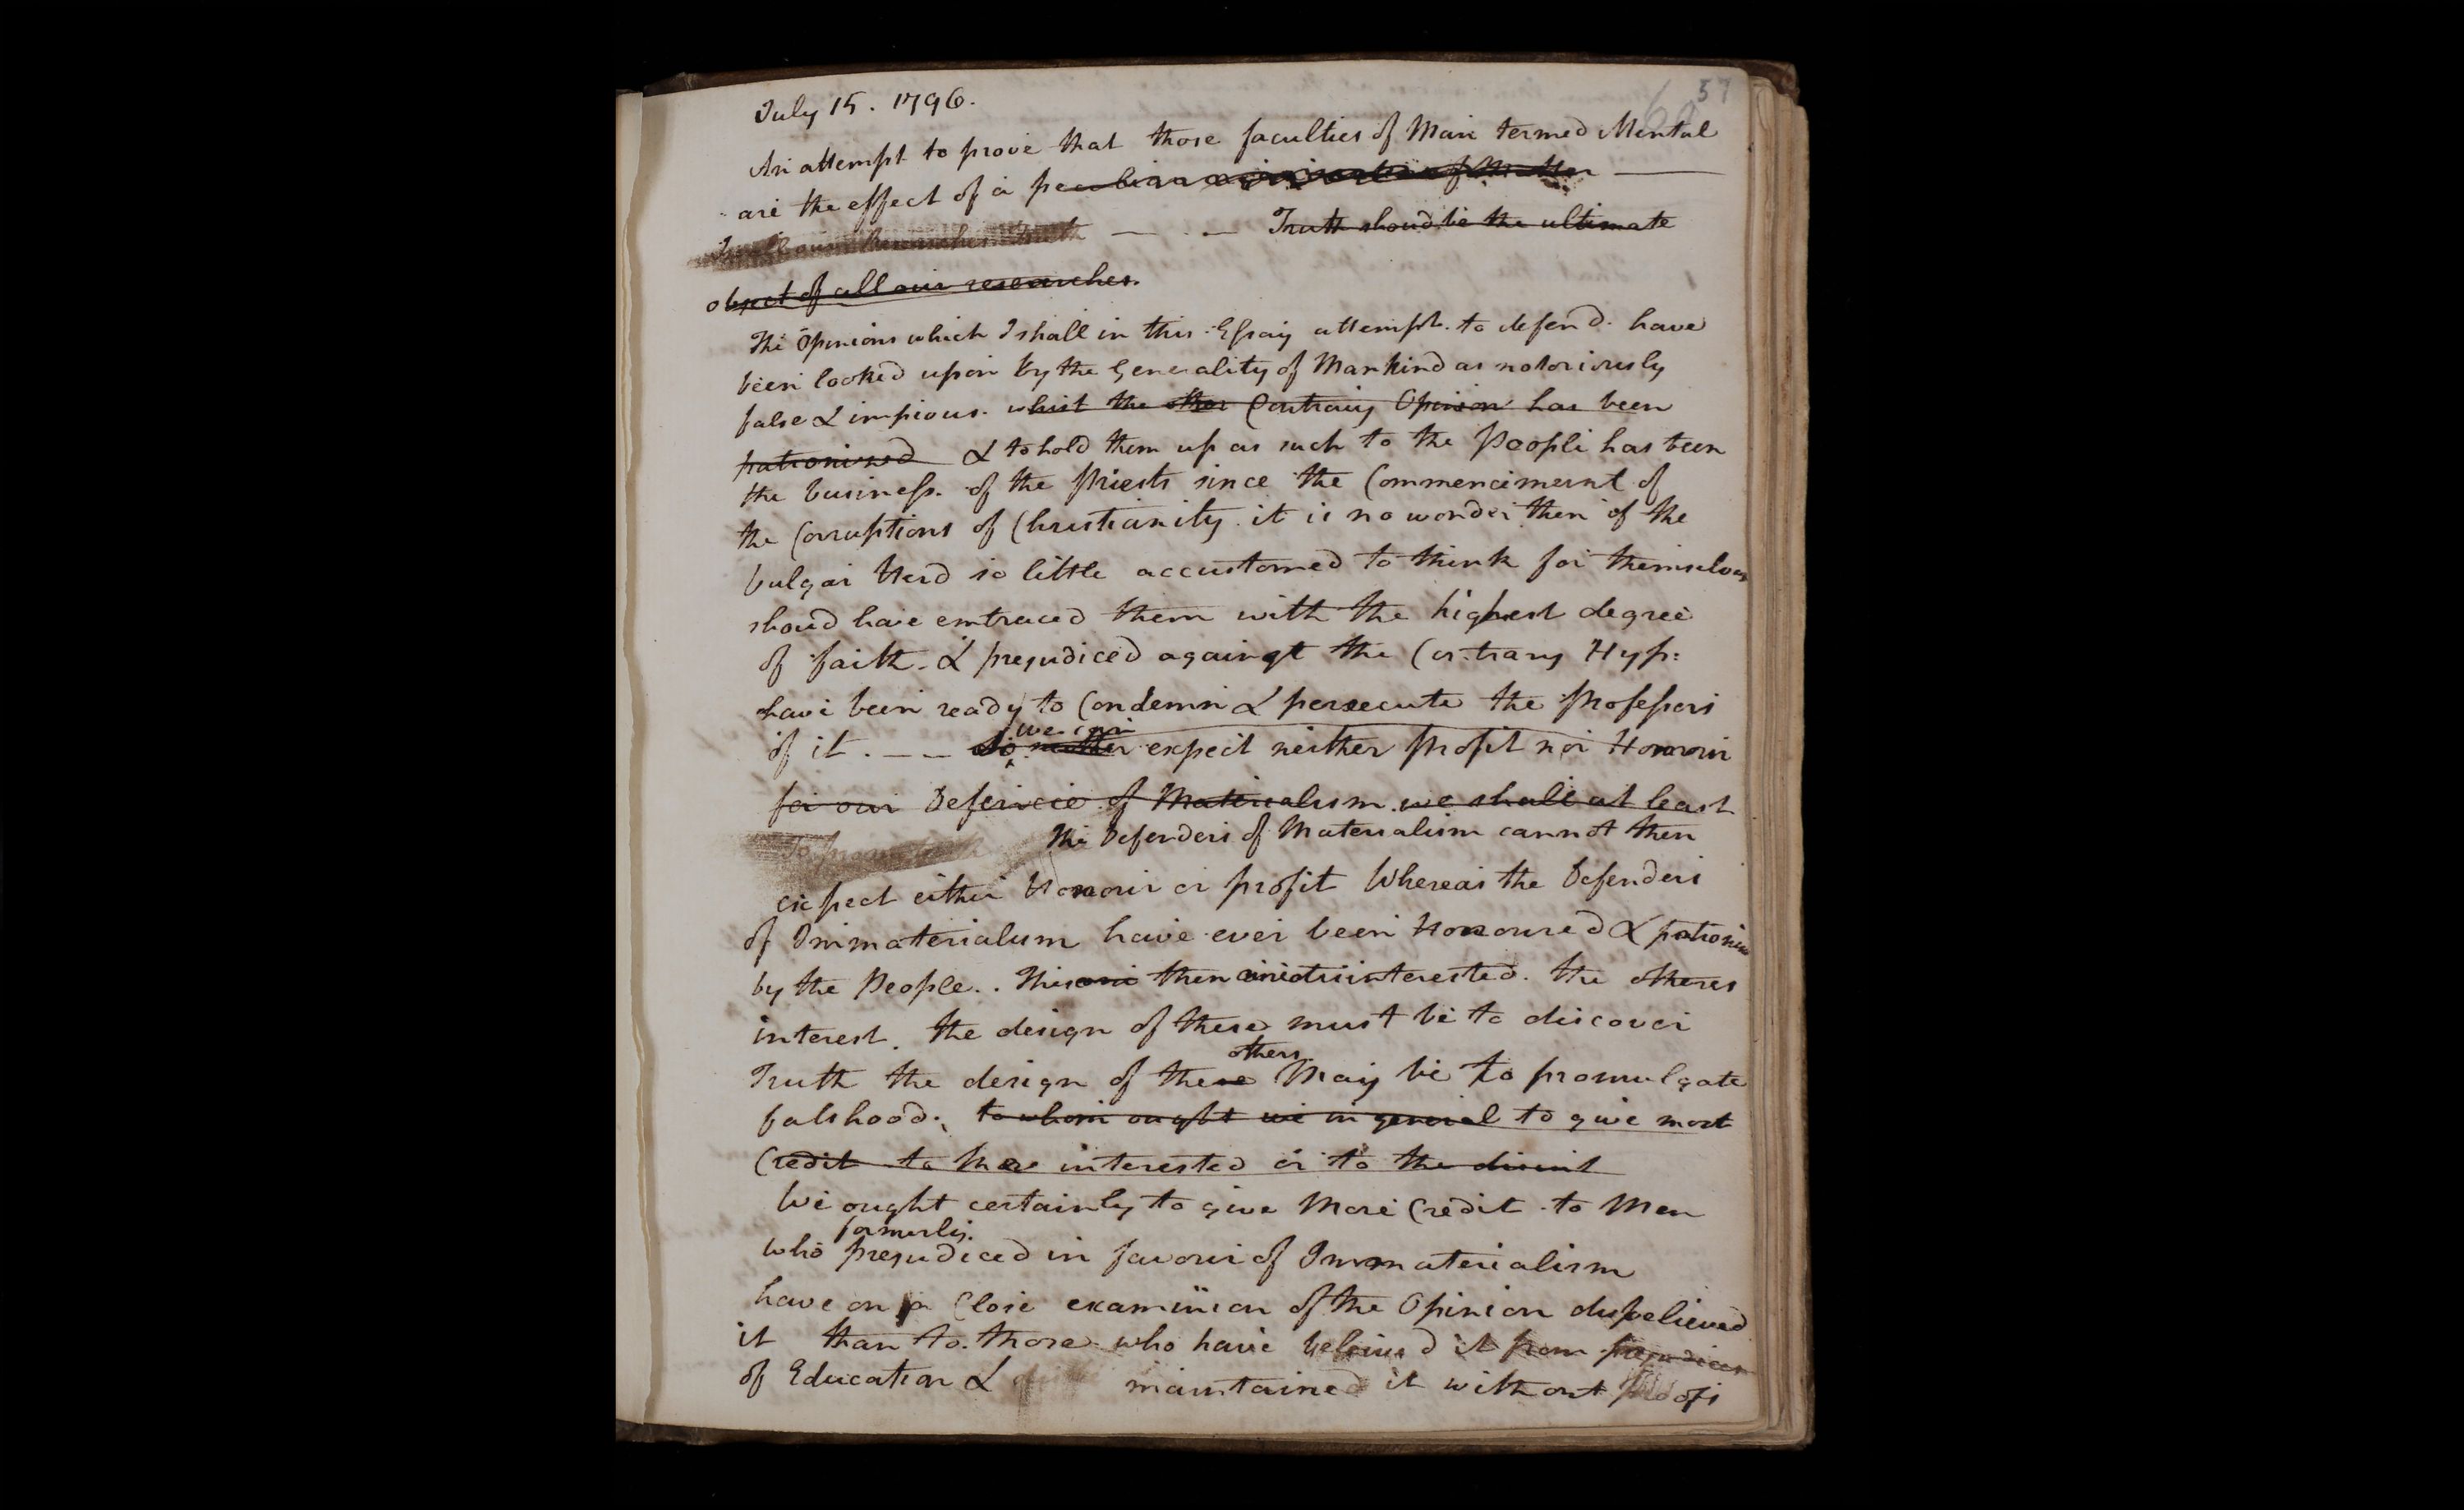 57
July 15. 1796.
An attempt to prove that those faculties of Man termed Mental
are the effect of a peculiar organization of Matter
In all our Researches Truth — . — Truth shoud be the ultimate
object of all our researches.
The Opinions which I shall in this Essay attempt. to defend. have
been looked upon by the Generality of Mankind as notoriously
false & impious. whist the other Contrary Opinion has been
patronised & to hold them up as such to the People has been
the business. of the Priests since the Commencement of
the Corruptions of Christianity. it is no wonder then if the
vulgar Herd so little accustomed to think for themselves
shoud have embraced them with the highest degree
of faith. & prejudiced against the Contrary Hyp:
have been ready to Condemn & persecute the Professors
we can
of it . — — expect neither Profit nor Honour
for our Defencce of Materialism we shall at least
The Defenders of Materialism cannot then
expect either Honour or profit Whereas the Defenders
of Immaterialism have ever been Honoured & patronised
by the People. . then disinterested. the otheres
interest. the design of these must be to discover
others
Truth the design of these May be to promulgate
falshood. to whom ought we in general to give most
Credit to the interested or to the disint
We ought certainly to give More Credit to Men
formerly.
who prejudiced in favour of Immaterialism
have on a Close examiinion of the Opinion disbelieved
it than to those who have believed it from prejudices
of Education & maintained it without proofs